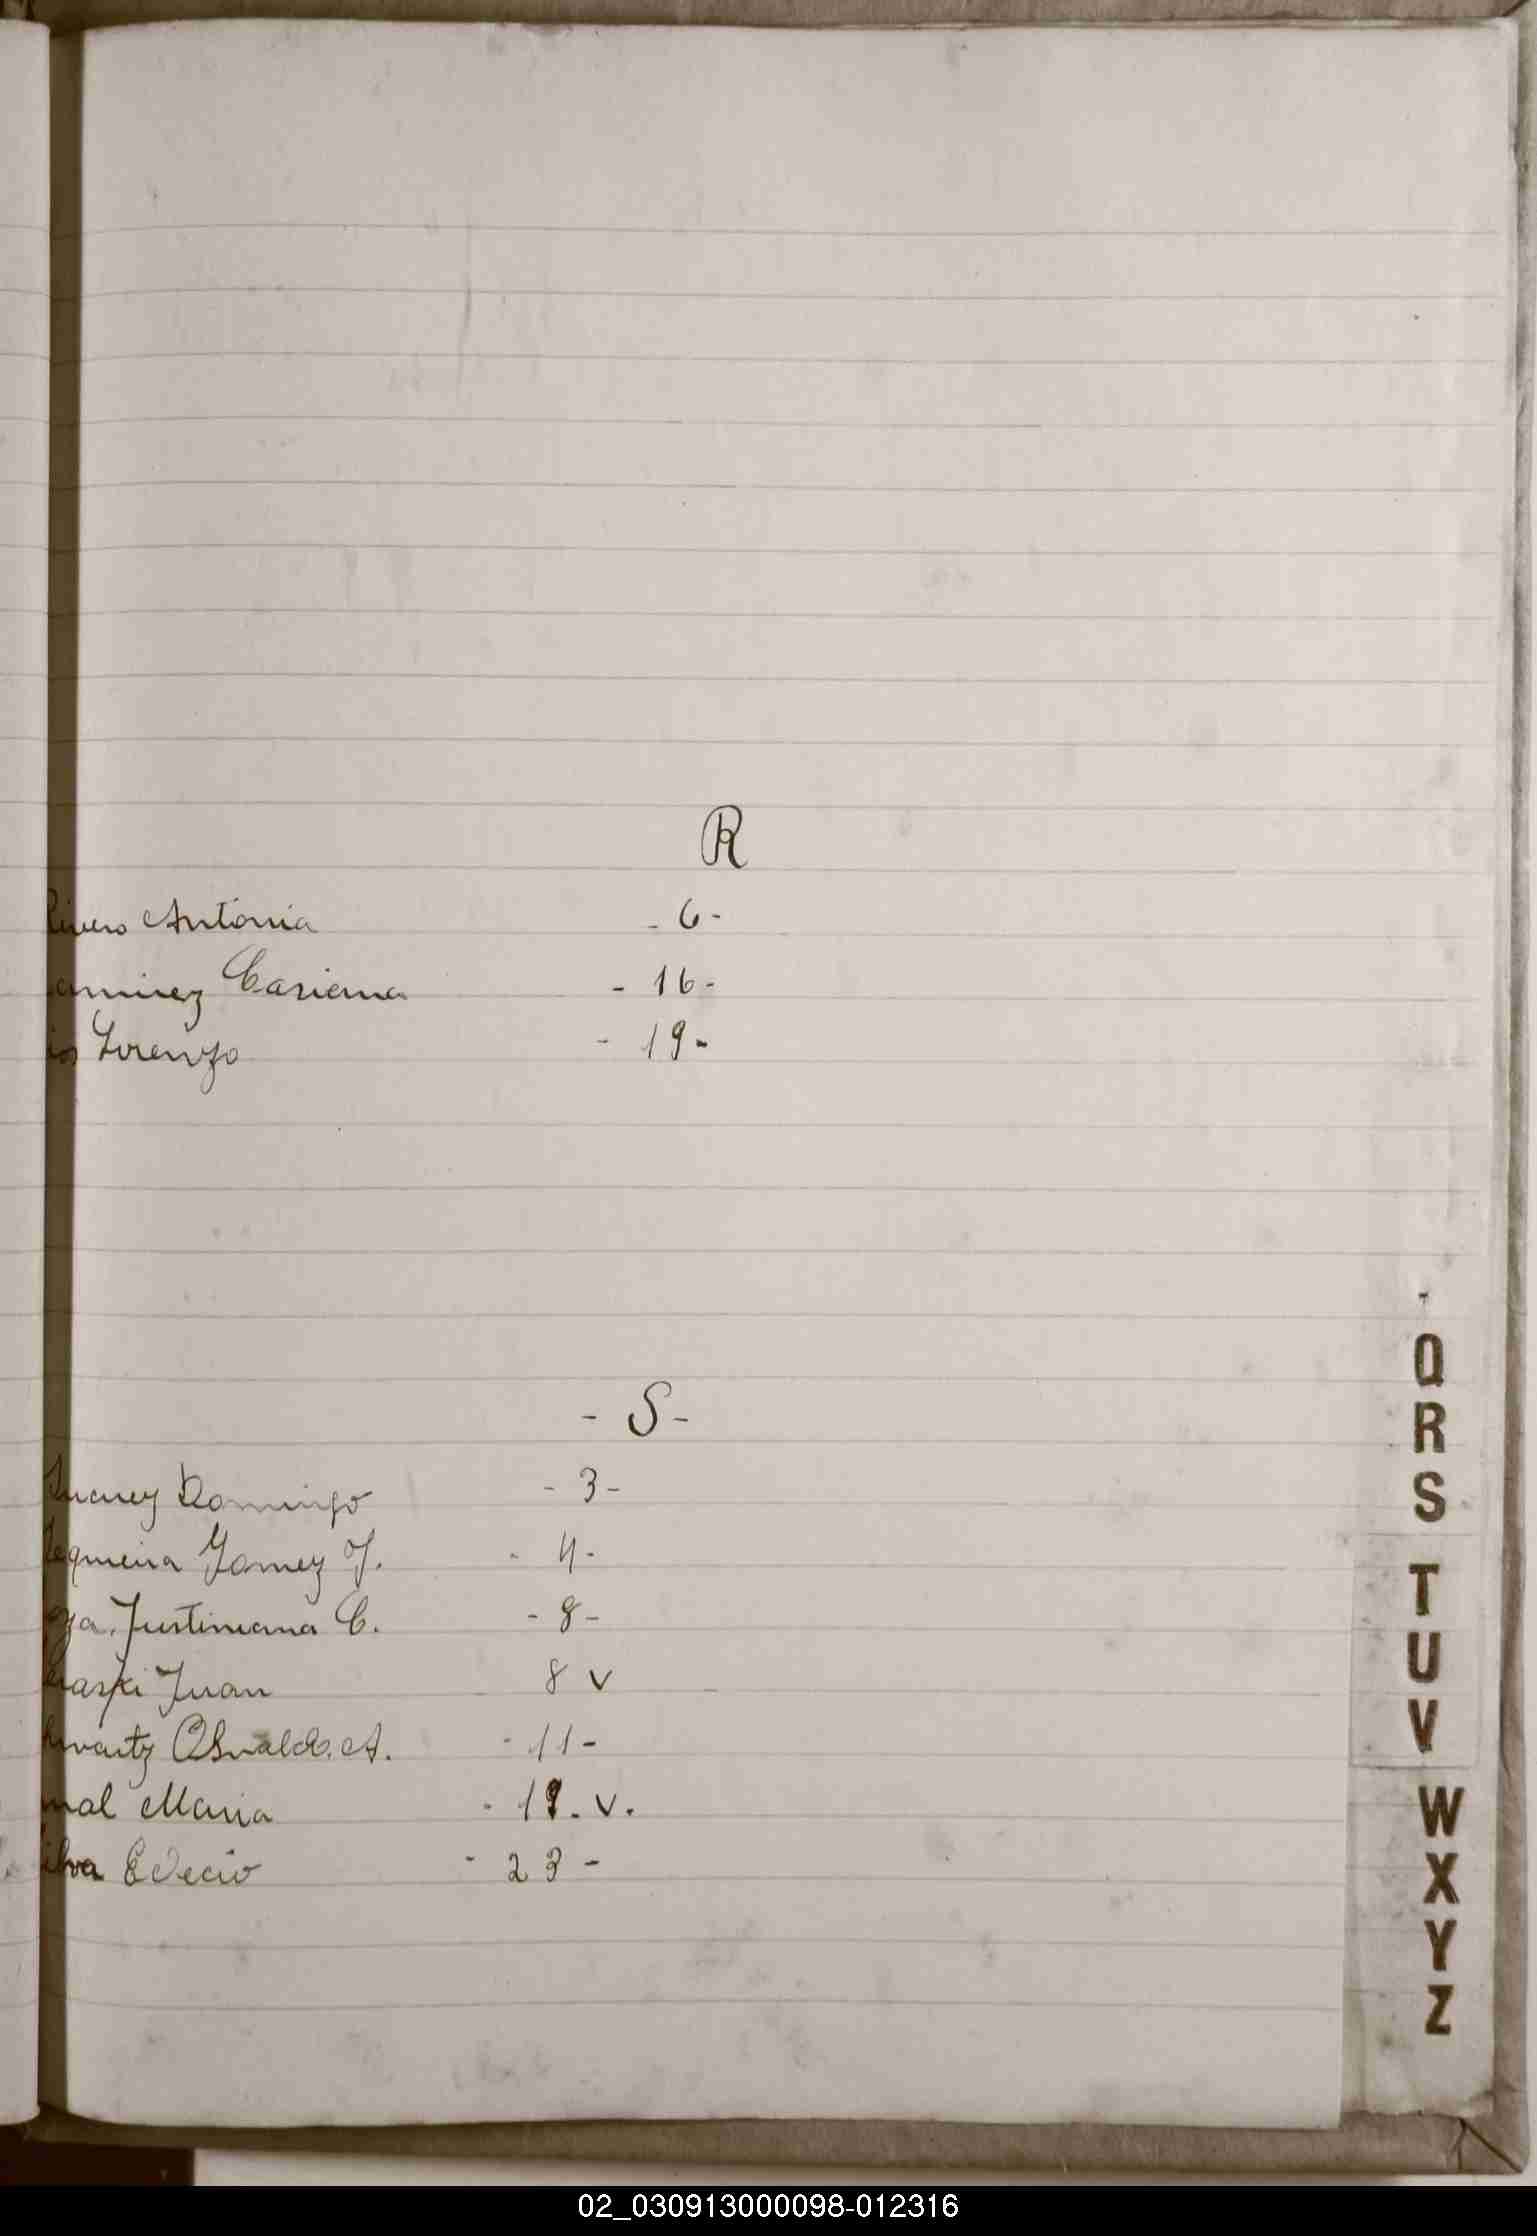 R
Rivero Antonia - 6 -
amirez Casiana - 16 -
ios Lorenzo - 19 -
- S -
Suarez Domingo - 3 -
Sequeira Gomez J. - 4 -
oza Justiniana C. - 8 -
Juan 8 v
hwartz Osvaldo A. - 11 -
nal Maria - 19 . v .
Silva Edecio - 23 -
Q
R
S
T
U
V
W
X
Y
Z
02_030913000098-012316